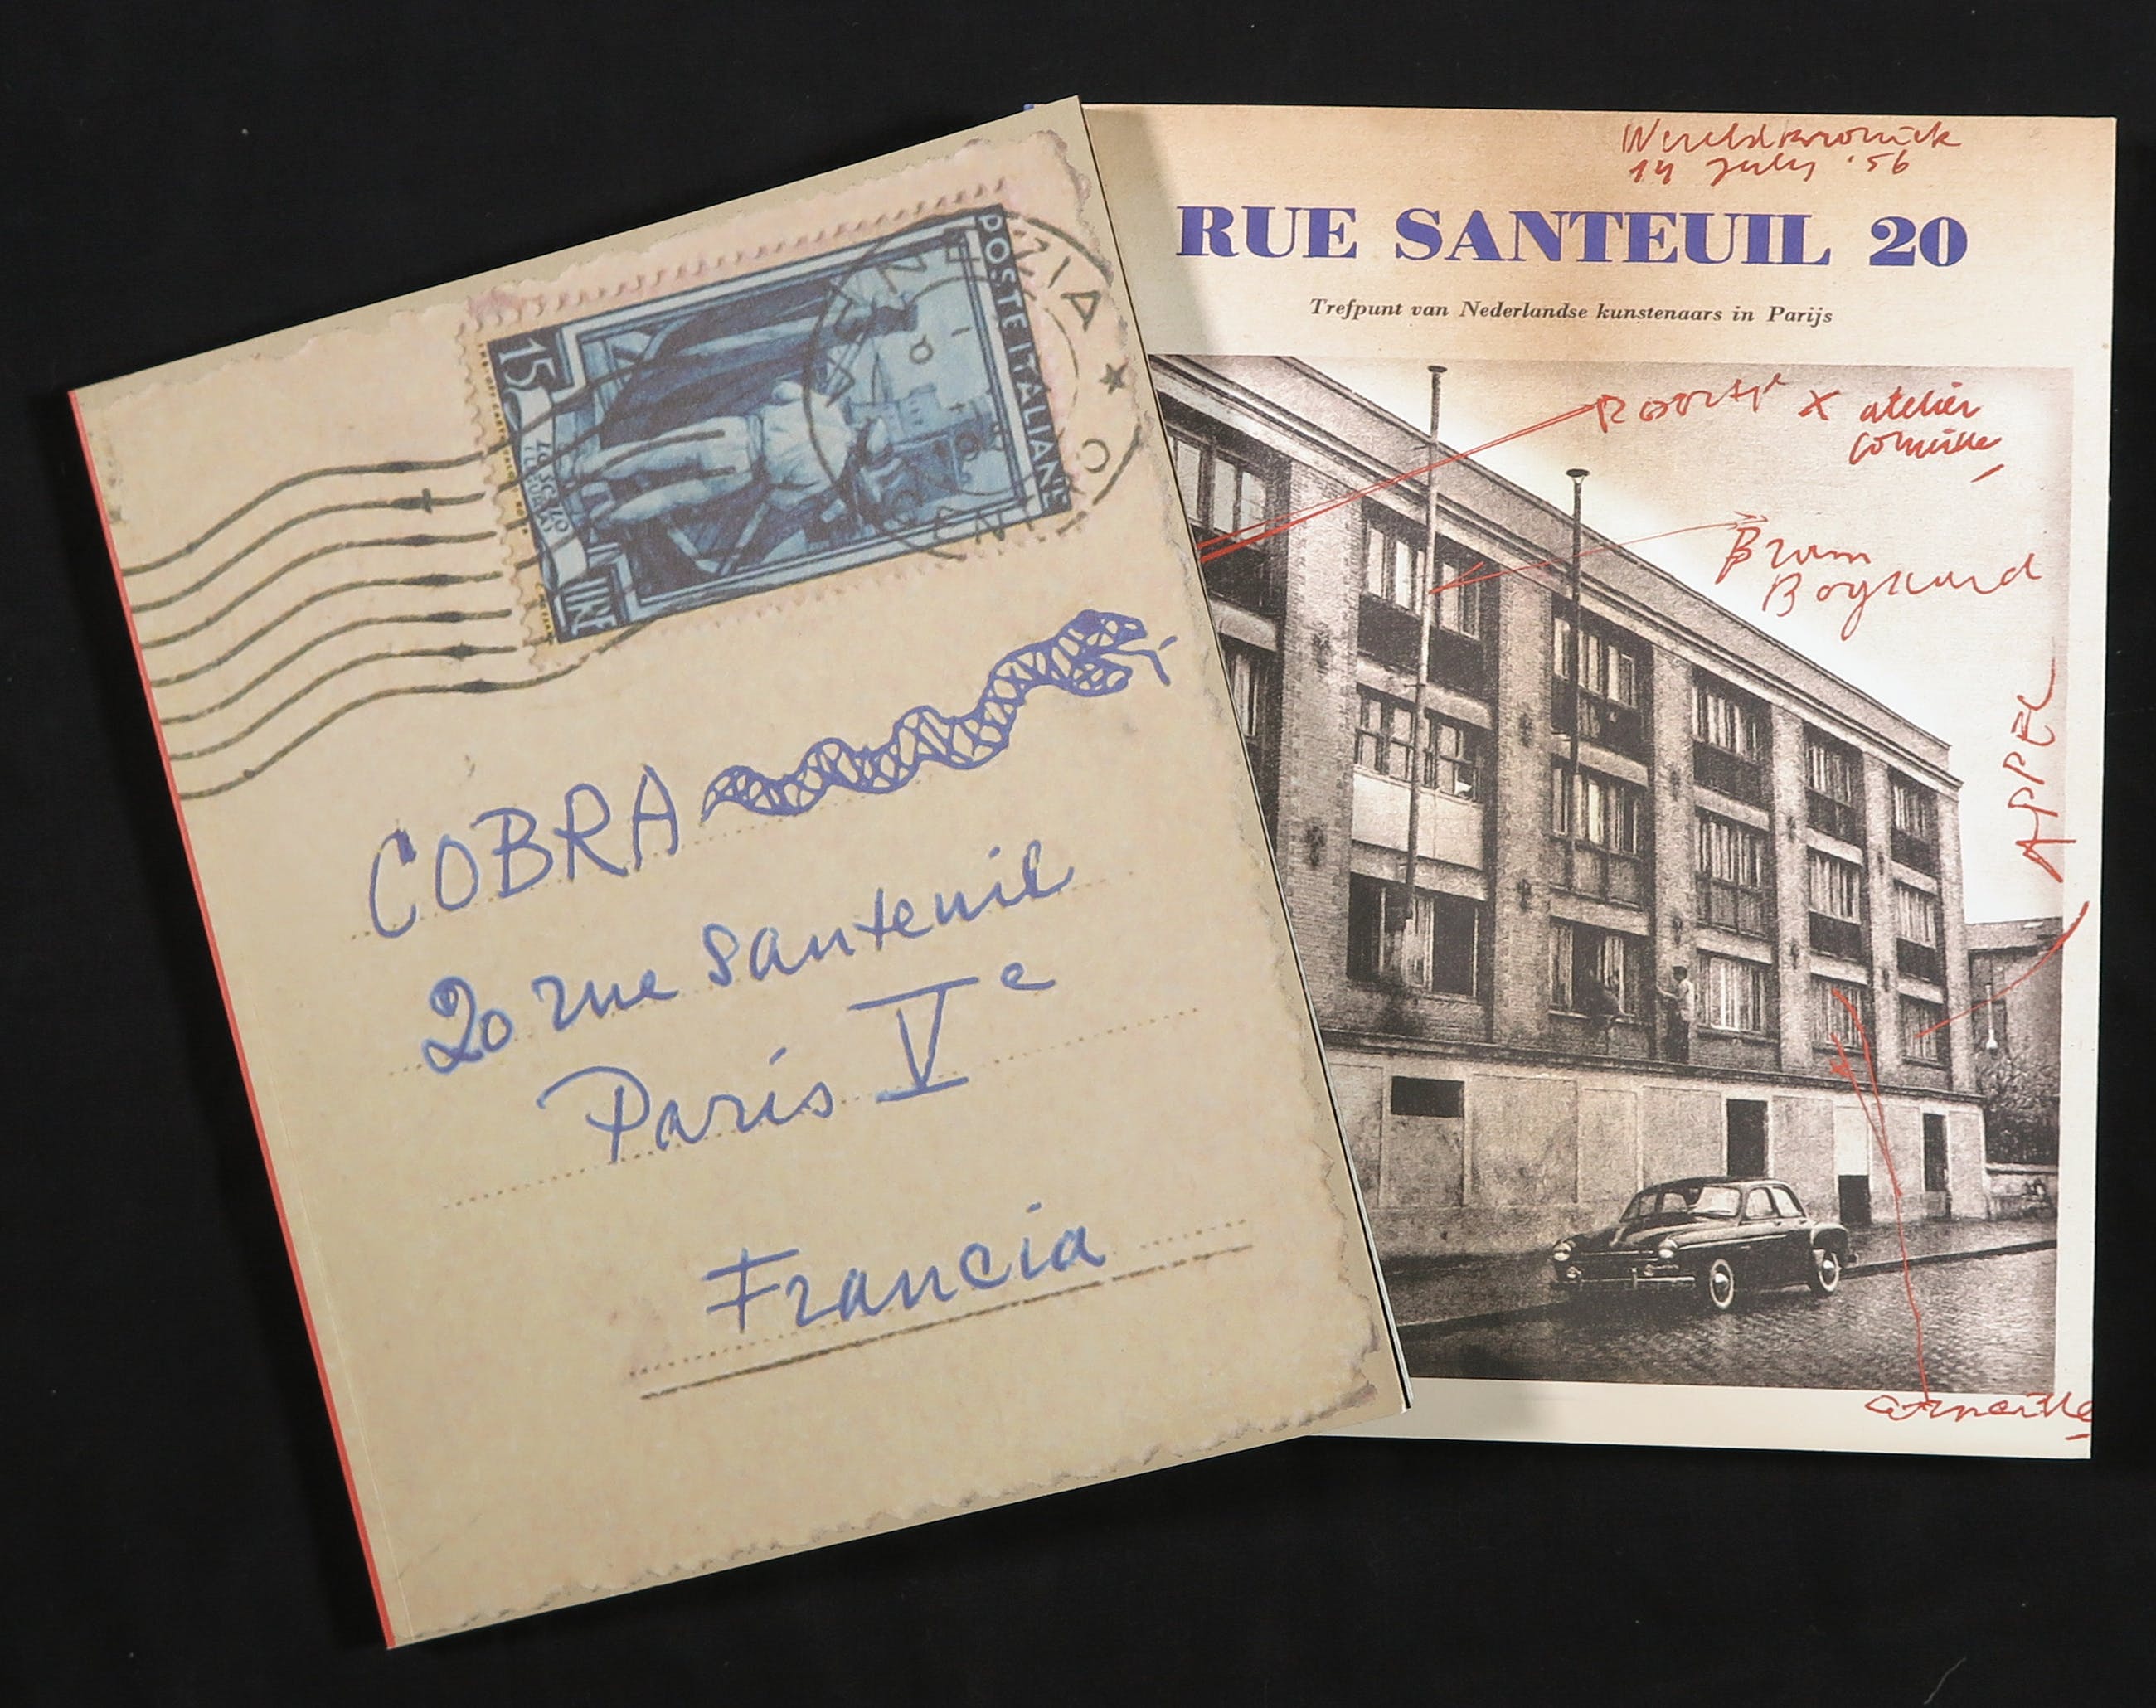 15
LIRE
POSTE ITALIANE
VENEZIA
COBRA
20 rue Santeuil
Paris Ve
Francia
Wereldkroniek
14 July '56
RUE SANTEUIL 20
Trefpunt van Nederlandse kunstenaars in Parijs
X atelier
Corneille
Bram
Bogaard
APPEL
Corneille